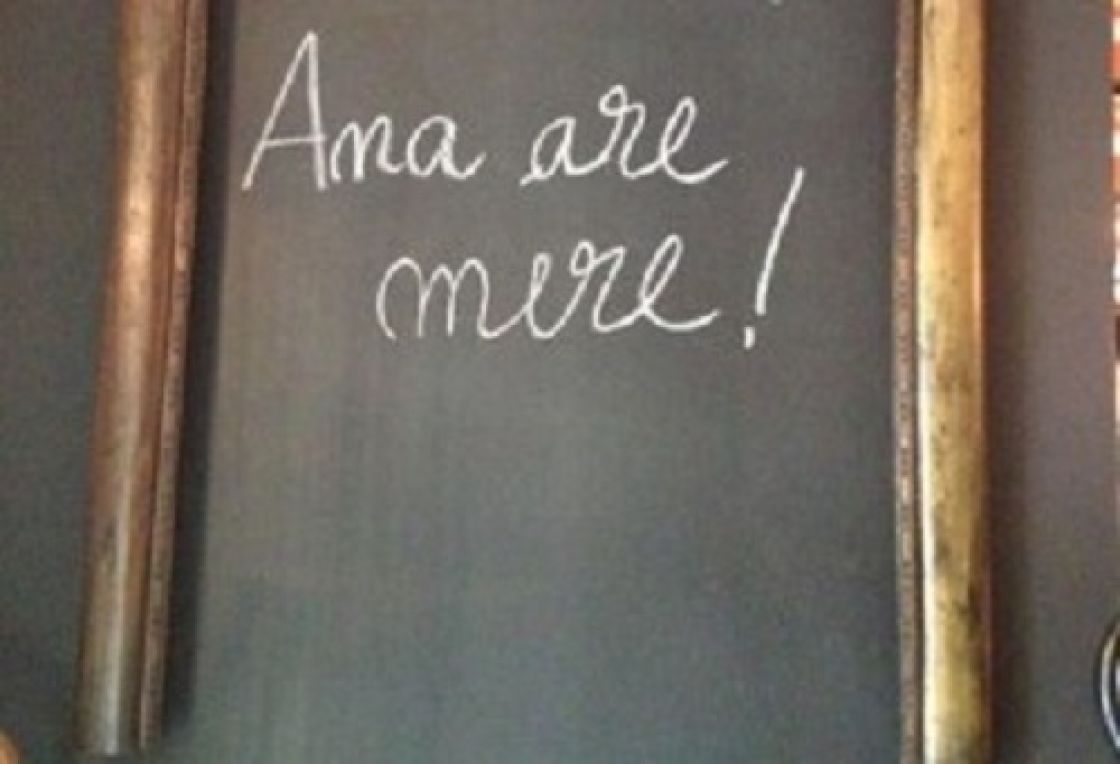 Ana are
mere!